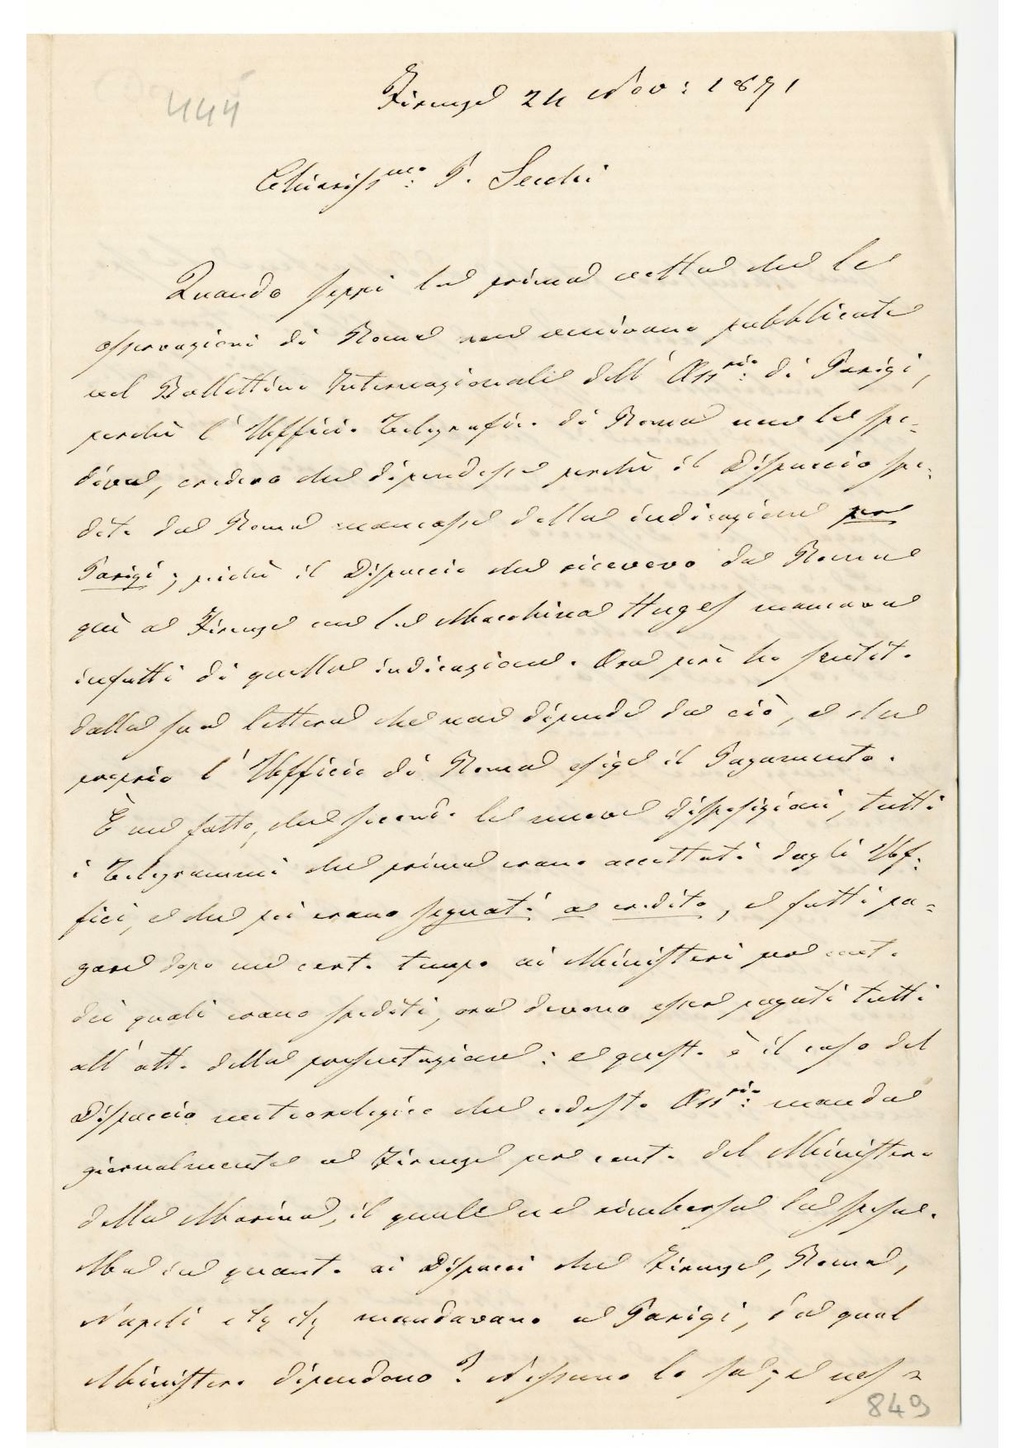 444
Firenze 24 Nov: 1871
Chiariss.mo: P. Secchi
Quando seppi la prima volta che le
osservazioni di Roma non venivano pubblicate
nel Bullettino Internazionale dell' Oss.rio: di Parigi,
perchè l'Ufficio Telegrafico di Roma non le spe=
diva, credevo che dipendesse perchè il Dispaccio spe=
dito da Roma mancasse della indicazione per
Parigi; poichè il Dispaccio che ricevevo da Roma
quì a Firenze con la Macchina Huges mancava
infatti di quella indicazione. Ora però ho sentito
dalla sua lettera che non dipende da ciò, e che
proprio l'Ufficio di Roma esige il Pagamento.
È un fatto, che secondo le nuove disposizioni, tutti
i Telegrammi che prima erano accettati dagli Uf=
fici, e che poi erano segnati a credito, e fatti pa=
gare dopo un certo tempo ai Ministeri per conto
dei quali erano spediti, ora devono esser pagati tutti
all'atto della presentazione: e questo è il caso del
Dispaccio meteorologico che codesto Oss.rio: manda
giornalmente a Firenze per conto del Ministero
della Marina, il quale ne rimborsa la spesa.
Ma in quanto ai Dispacci che Firenze, Roma,
Napoli etc etc mandavano a Parigi, da qual
Ministero dipendono? Nessuno lo sa; e nes=
849